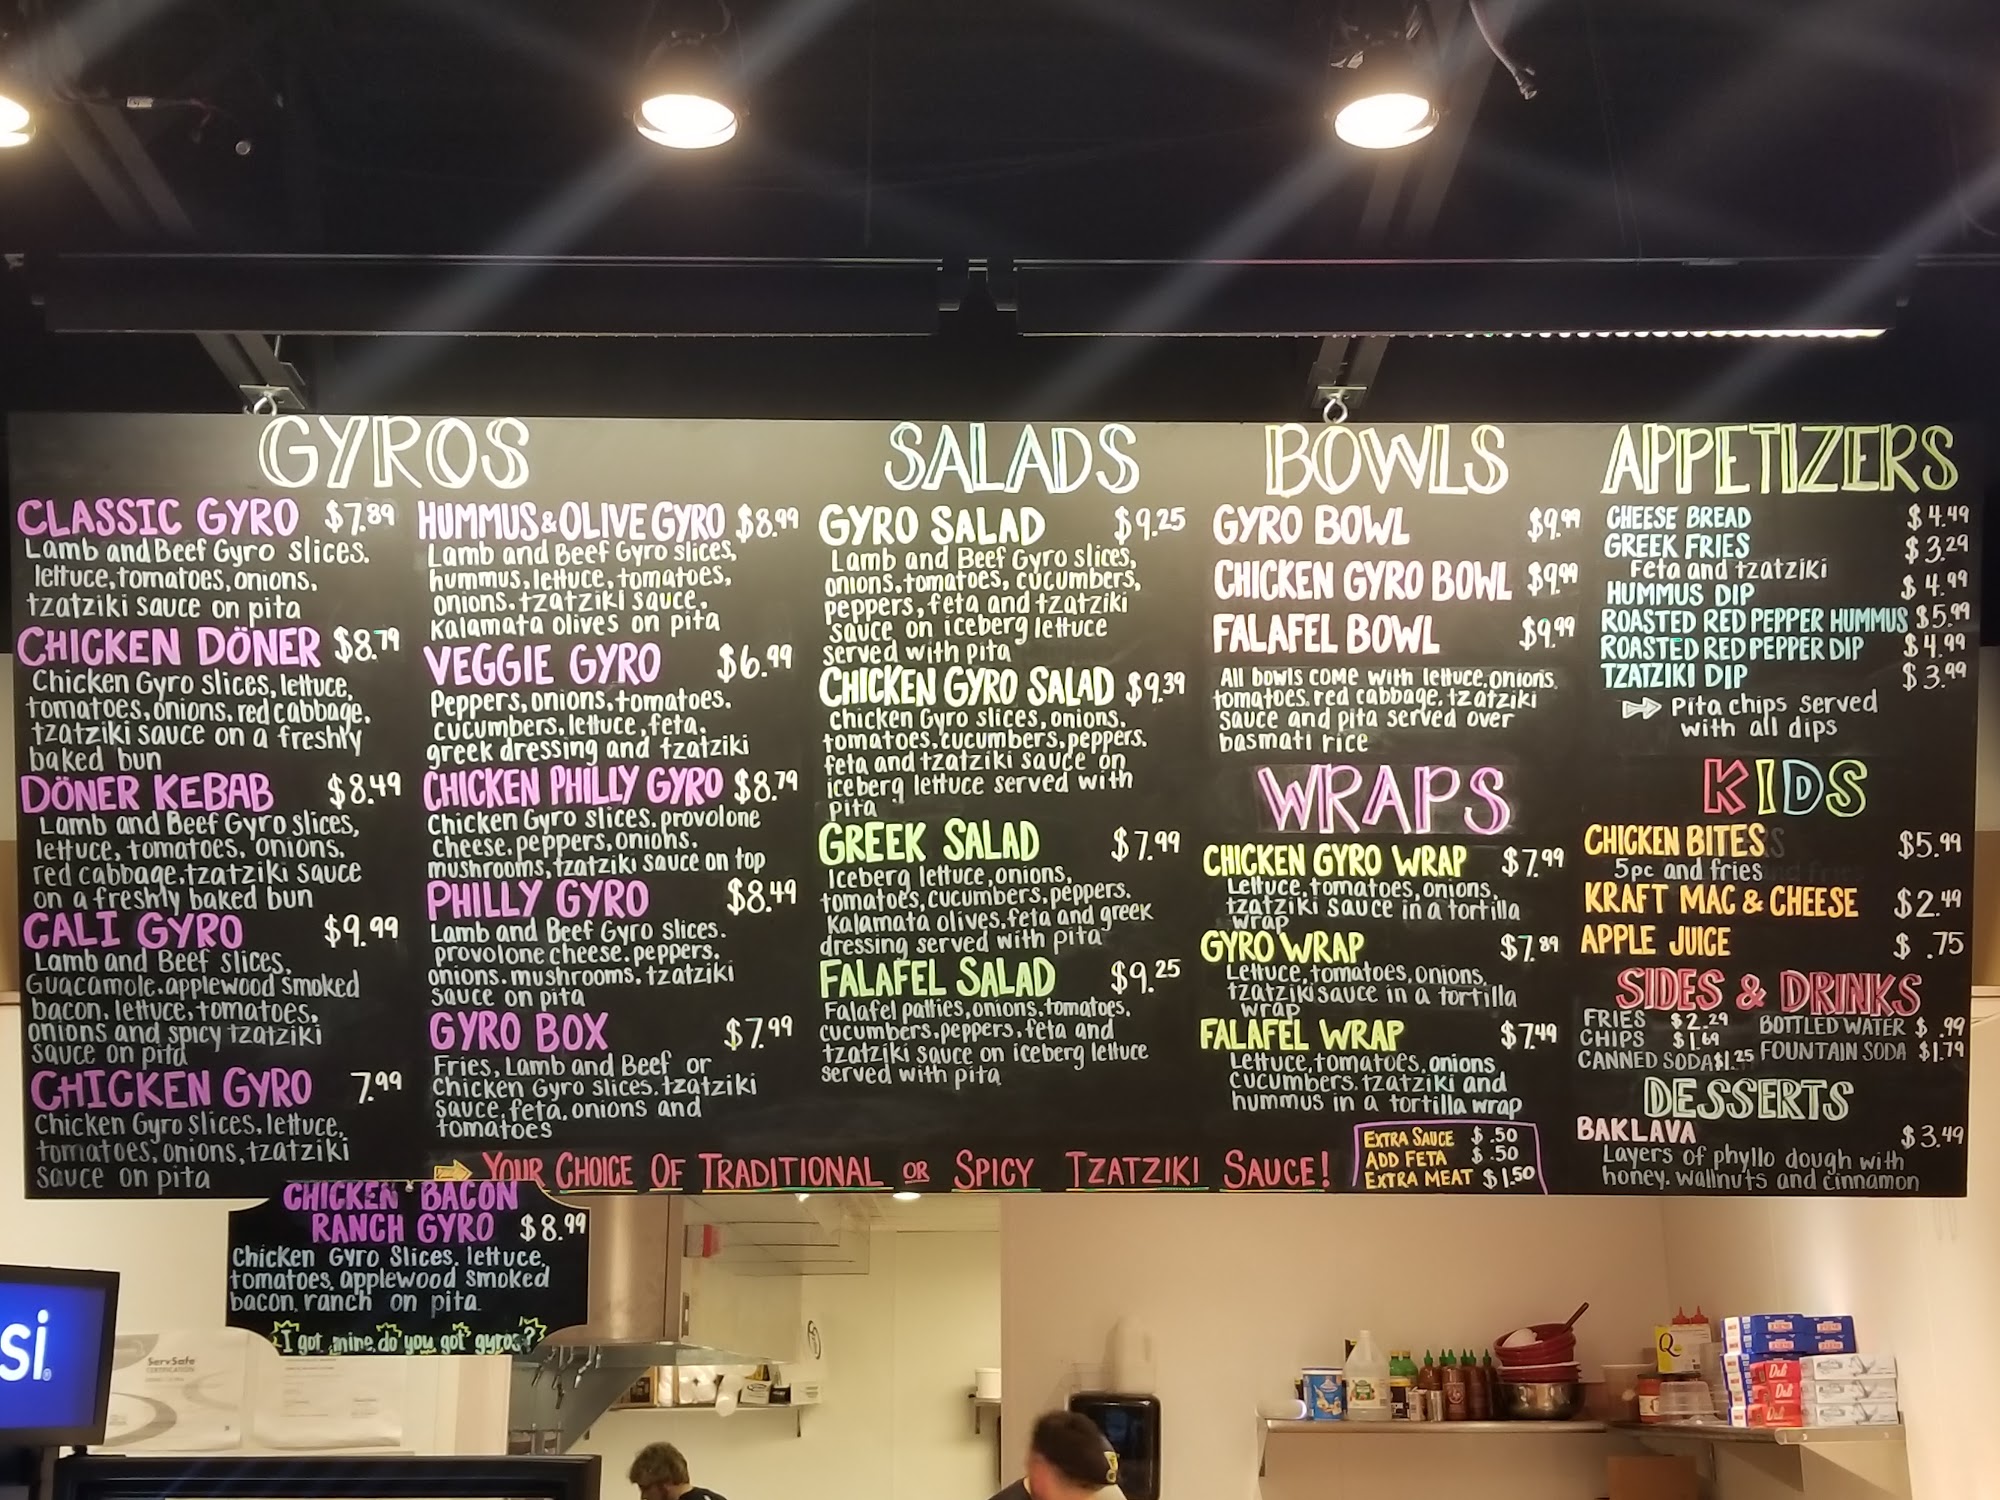 GYROS
CLASSIC GYRO $7.89
Lamb and Beef Gyro slices.
lettuce, tomatoes, onions,
tzatziki sauce on pita
CHICKEN DÖNER $8.79
Chicken Gyro slices, lettuce,
tomatoes, onions, red cabbage,
tzatziki sauce on a freshly
baked bun
DÖNER KEBAB $8.49
Lamb and Beef Gyro slices,
lettuce, tomatoes, onions,
red cabbage, tzatziki sauce
on a freshly baked bun
CALI GYRO $9.99
Lamb and Beef slices,
Guacamole, applewood smoked
bacon, lettuce, tomatoes,
onions and spicy tzatziki
sauce on pita
CHICKEN GYRO 7.99
Chicken Gyro slices, lettuce,
tomatoes, onions, tzatziki
sauce on pita
HUMMUS & OLIVE GYRO $8.99
Lamb and Beef Gyro slices,
hummus, lettuce, tomatoes,
onions, tzatziki sauce,
Kalamata olives on pita
VEGGIE GYRO $6.99
Peppers, onions, tomatoes,
cucumbers, lettuce, feta,
greek dressing and tzatziki
CHICKEN PHILLY GYRO $8.79
Chicken Gyro slices, provolone
cheese, peppers, onions,
mushrooms, tzatziki sauce on top
PHILLY GYRO $8.49
Lamb and Beef Gyro slices,
provolone cheese, peppers,
onions, mushrooms, tzatziki
sauce on pita
GYRO BOX $7.99
Fries, Lamb and Beef or
Chicken Gyro slices, tzatziki
sauce, feta, onions and
tomatoes
SALADS
GYRO SALAD $9.25
Lamb and Beef Gyro slices,
onions, tomatoes, cucumbers,
peppers, feta and tzatziki
sauce on iceberg lettuce
served with pita
CHICKEN GYRO SALAD $9.39
Chicken Gyro slices, onions,
tomatoes, cucumbers, peppers,
feta and tzatziki sauce on
iceberg lettuce served with
pita
GREEK SALAD $7.99
Iceberg lettuce, onions,
tomatoes, cucumbers, peppers,
Kalamata olives, feta and greek
dressing served with pita
FALAFEL SALAD $9.25
Falafel patties, onions, tomatoes,
cucumbers, peppers, feta and
tzatziki sauce on iceberg lettuce
served with pita
BOWLS
GYRO BOWL $9.99
CHICKEN GYRO BOWL $9.99
FALAFEL BOWL $9.99
All bowls come with lettuce, onions,
tomatoes, red cabbage, tzatziki
sauce and pita served over
basmati rice
WRAPS
CHICKEN GYRO WRAP $7.99
Lettuce, tomatoes, onions,
tzatziki sauce in a tortilla
wrap
GYRO WRAP $7.89
Lettuce, tomatoes, onions,
tzatziki sauce in a tortilla
wrap
FALAFEL WRAP $7.49
Lettuce, tomatoes, onions
cucumbers, tzatziki and
hummus in a tortilla wrap
APPETIZERS
CHEESE BREAD $4.49
GREEK FRIES $3.29
Feta and tzatziki
HUMMUS DIP $4.99
ROASTED RED PEPPER HUMMUS $5.99
ROASTED RED PEPPER DIP $4.99
TZATZIKI DIP $3.99
Pita chips served
with all dips
KIDS
CHICKEN BITES $5.99
5pc and fries
KRAFT MAC & CHEESE $2.49
APPLE JUICE $ .75
SIDES & DRINKS
FRIES $2.29
CHIPS $1.69
CANNED SODA $1.25
BOTTLED WATER $ .99
FOUNTAIN SODA $1.79
DESSERTS
BAKLAVA $3.49
Layers of phyllo dough with
honey, wallnuts and cinnamon
YOUR CHOICE OF TRADITIONAL OR SPICY TZATZIKI SAUCE!
EXTRA SAUCE $ .50
ADD FETA $ .50
EXTRA MEAT $1.50
CHICKEN BACON
RANCH GYRO $8.99
Chicken Gyro Slices, lettuce,
tomatoes, applewood smoked
bacon, ranch on pita.
I got mine, do you got gyros?
si
ServSafe
CERTIFICATION
Deli
Deli